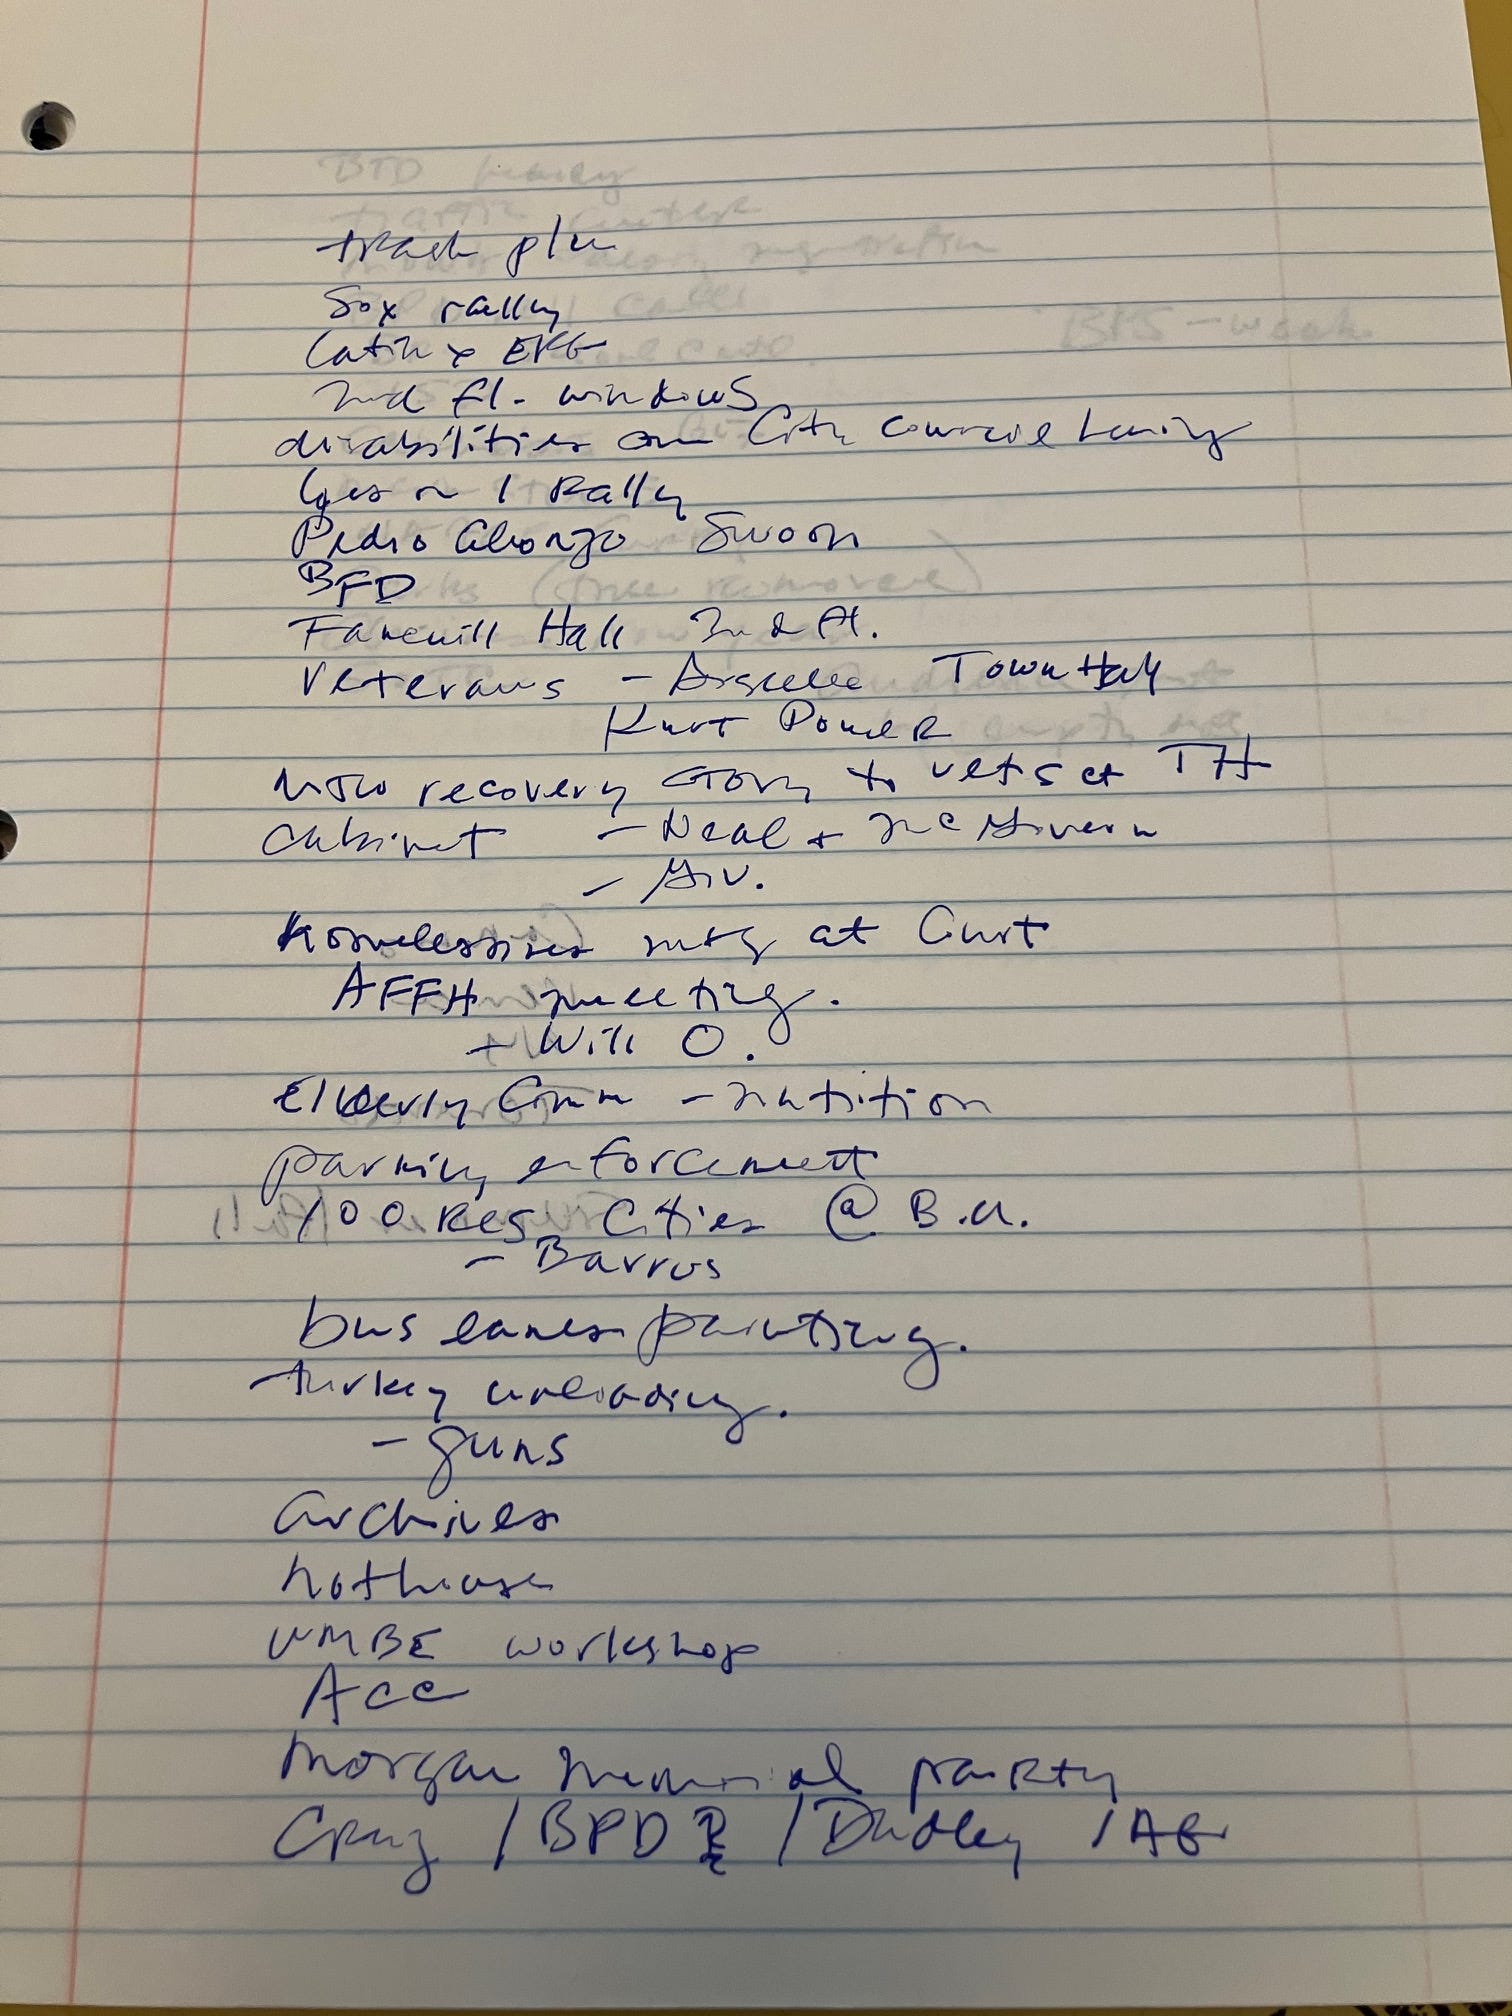 trash plan
Sox rally
Latinx ERG
2nd fl. windows
disabilities on City Council hearing
Yes on 1 Rally
Pedro Alonzo Swoon
BFD
Faneuill Hall 2nd fl.
Veterans - Town Hall
Kurt Power
MJW recovery story to vets at TH
Cabinet - Neal + McGovern
- Gov.
homelessness mtg at Curt
AFFH meeting.
+ Will O.
Elderly Comm - nutrition
parking enforcement
100 Res Cities @ B.U.
- Barros
bus lanes painting.
turkey unloading.
- guns
archives
hothouse
WMBE workshop
ACC
Morgan Memorial party
Cruz / BPD / Dudley / AG
BPS - week